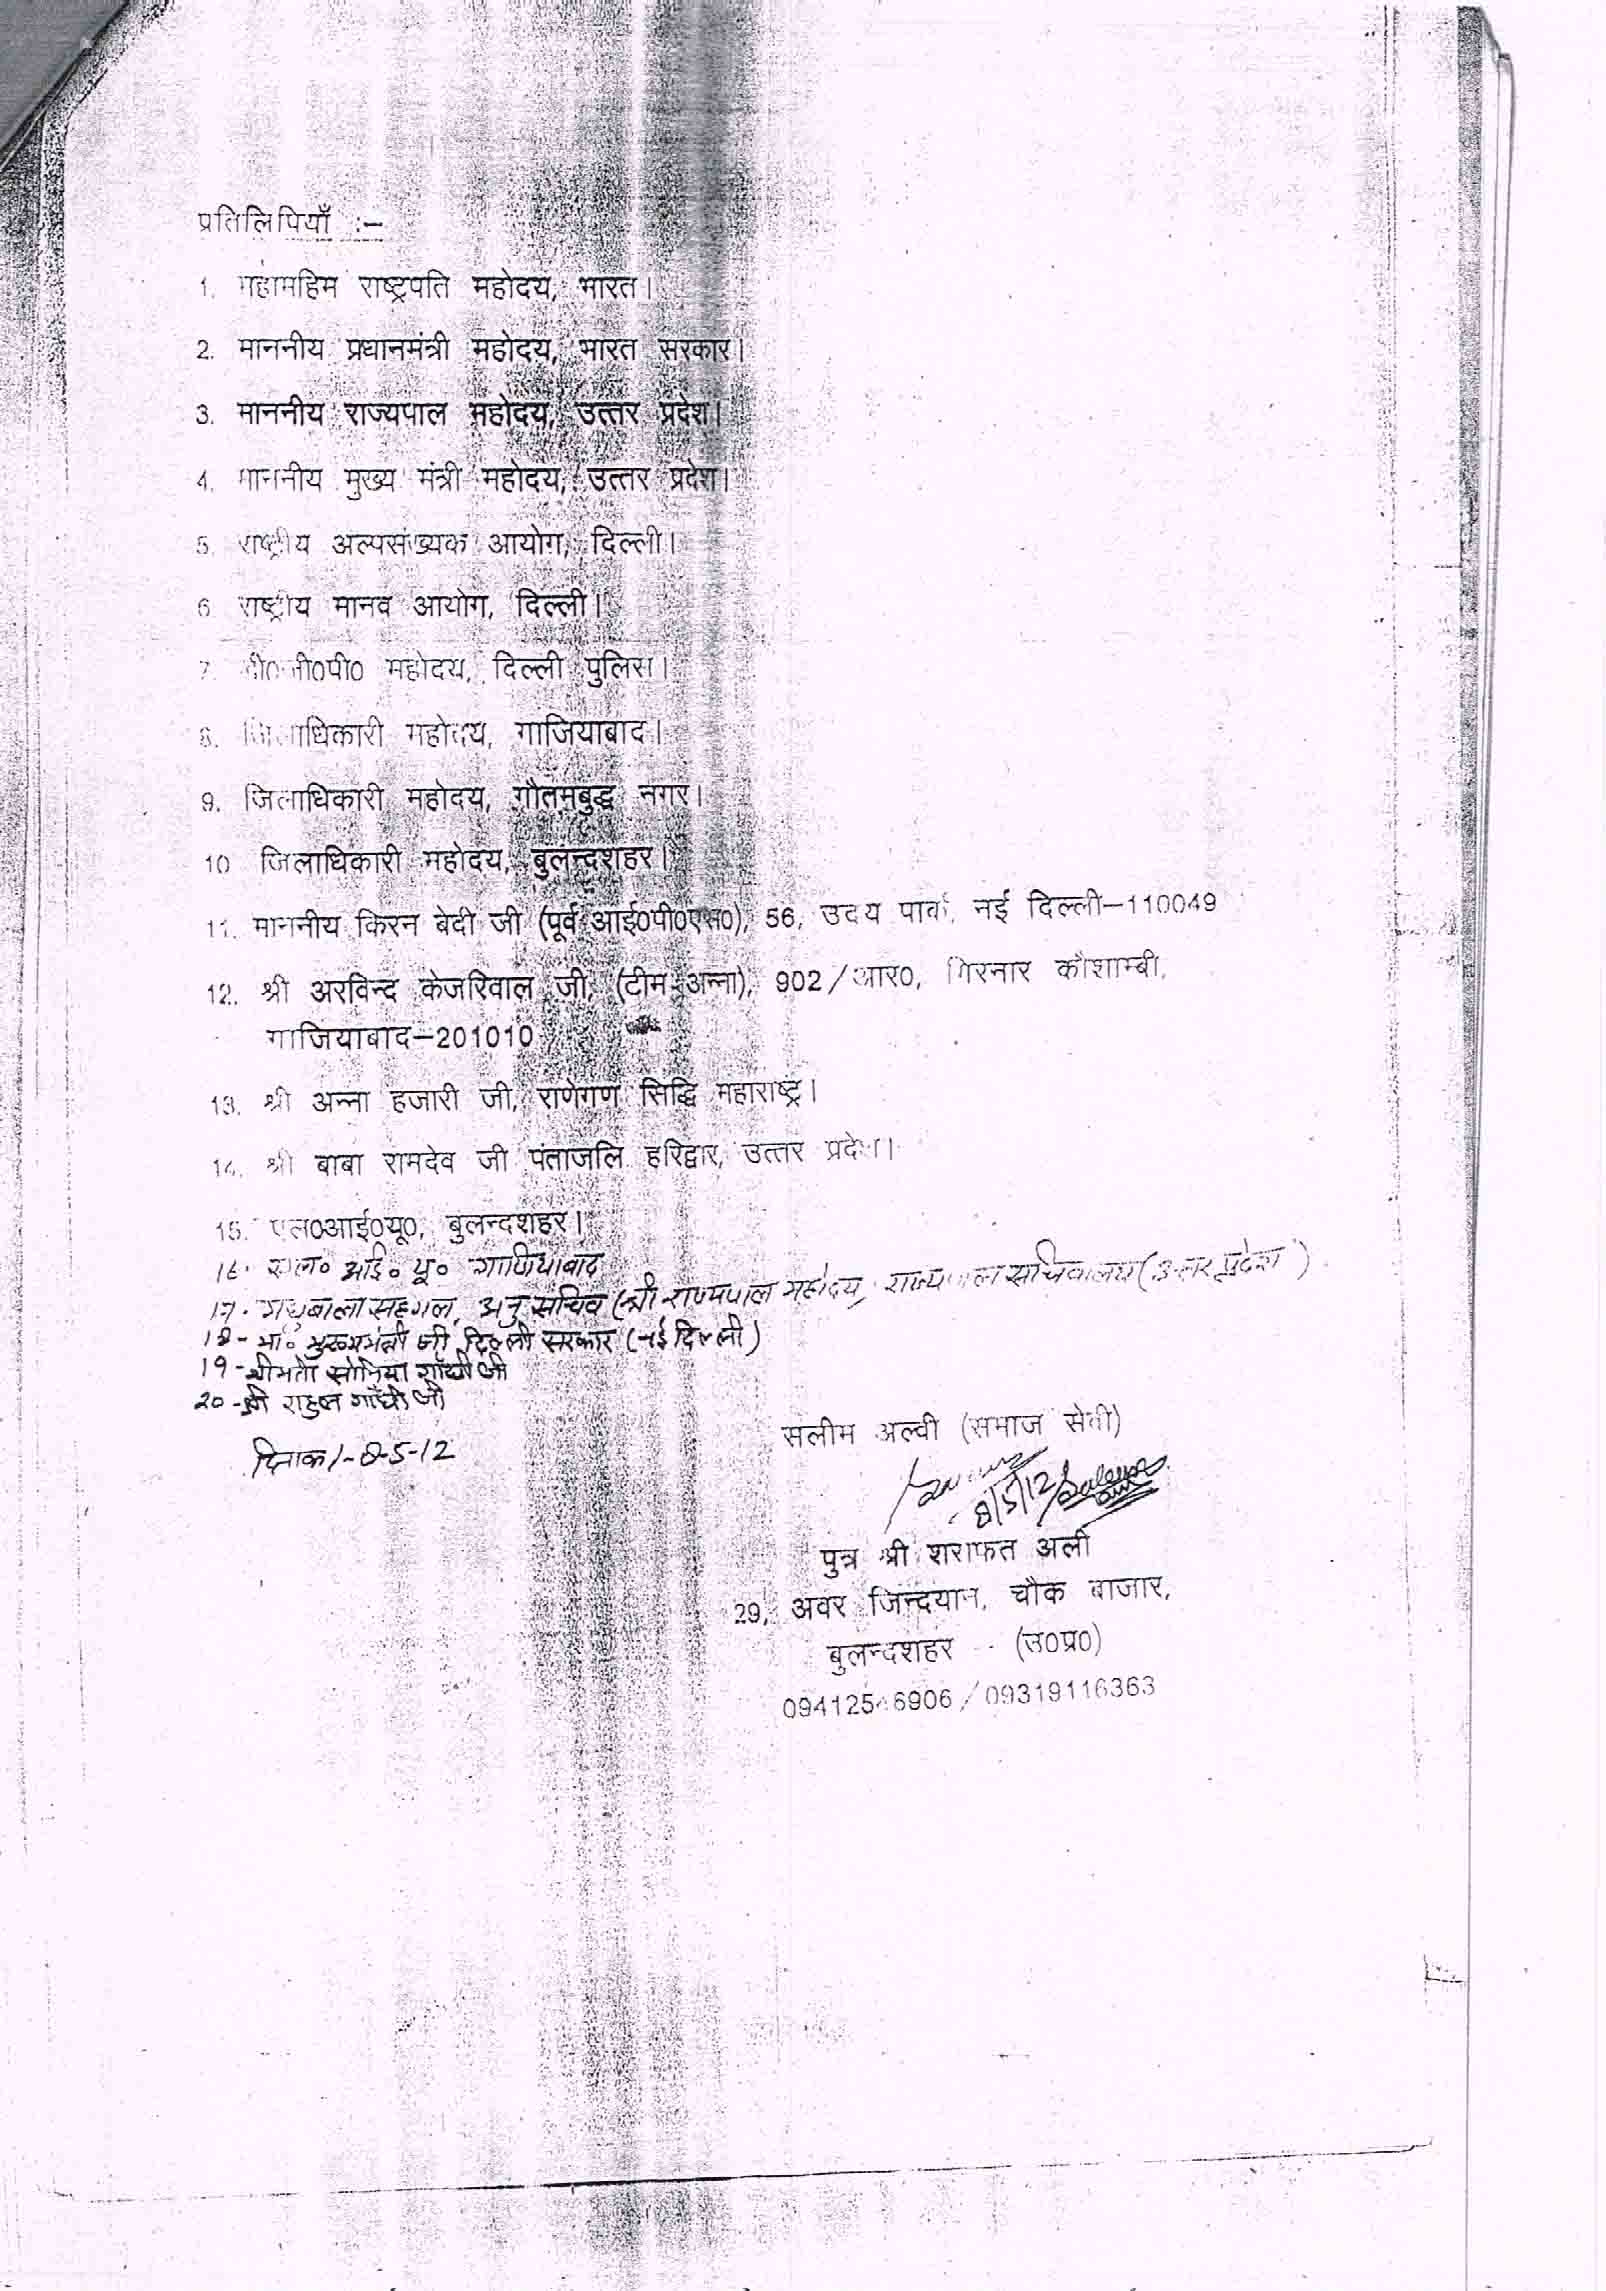 प्रतिलिपियाँ :–
1. महामहिम राष्ट्रपति महोदय, भारत।
2. माननीय प्रधानमंत्री महोदय, भारत सरकार।
3. माननीय राज्यपाल महोदय, उत्तर प्रदेश।
4. माननीय मुख्य मंत्री महोदय, उत्तर प्रदेश।
5. राष्ट्रीय अल्पसंख्यक आयोग, दिल्ली।
6. राष्ट्रीय मानव आयोग, दिल्ली।
7. डी०जी०पी० महोदय, दिल्ली पुलिस।
8. जिलाधिकारी महोदय, गाजियाबाद।
9. जिलाधिकारी महोदय, गौतमबुद्ध नगर।
10 जिलाधिकारी महोदय, बुलन्दशहर।
11. माननीय किरन बेदी जी (पूर्व आई०पी०एस०), 56, उदय पार्क, नई दिल्ली–110049
12. श्री अरविन्द केजरिवाल जी, (टीम अन्ना), 902/आर०, गिरनार कौशाम्बी,
गाजियाबाद–201010
13. श्री अन्ना हजारी जी, राणेगण सिद्धि महाराष्ट्र।
14. श्री बाबा रामदेव जी पंताजलि हरिद्वार, उत्तर प्रदेश।
15. एल०आई०यू०, बुलन्दशहर।
16. एल० आई० यू० गाजियाबाद
17. मधुबाला सहगल, अनु सचिव (श्री राज्यपाल महोदय, राज्यपाल सचिवालय (उत्तर प्रदेश)
18- मा० मुख्यमंत्री जी दिल्ली सरकार (नई दिल्ली)
19- श्रीमती सोनिया गाँधी जी
20- श्री राहुल गाँधी जी
दिनांक 1-8-5-12
सलीम अल्वी (समाज सेवी)
8/5/12 Saleem
पुत्र श्री शराफत अली
29, अवर जिन्दयान, चौक बाजार,
बुलन्दशहर - (उ०प्र०)
/ 09319116363